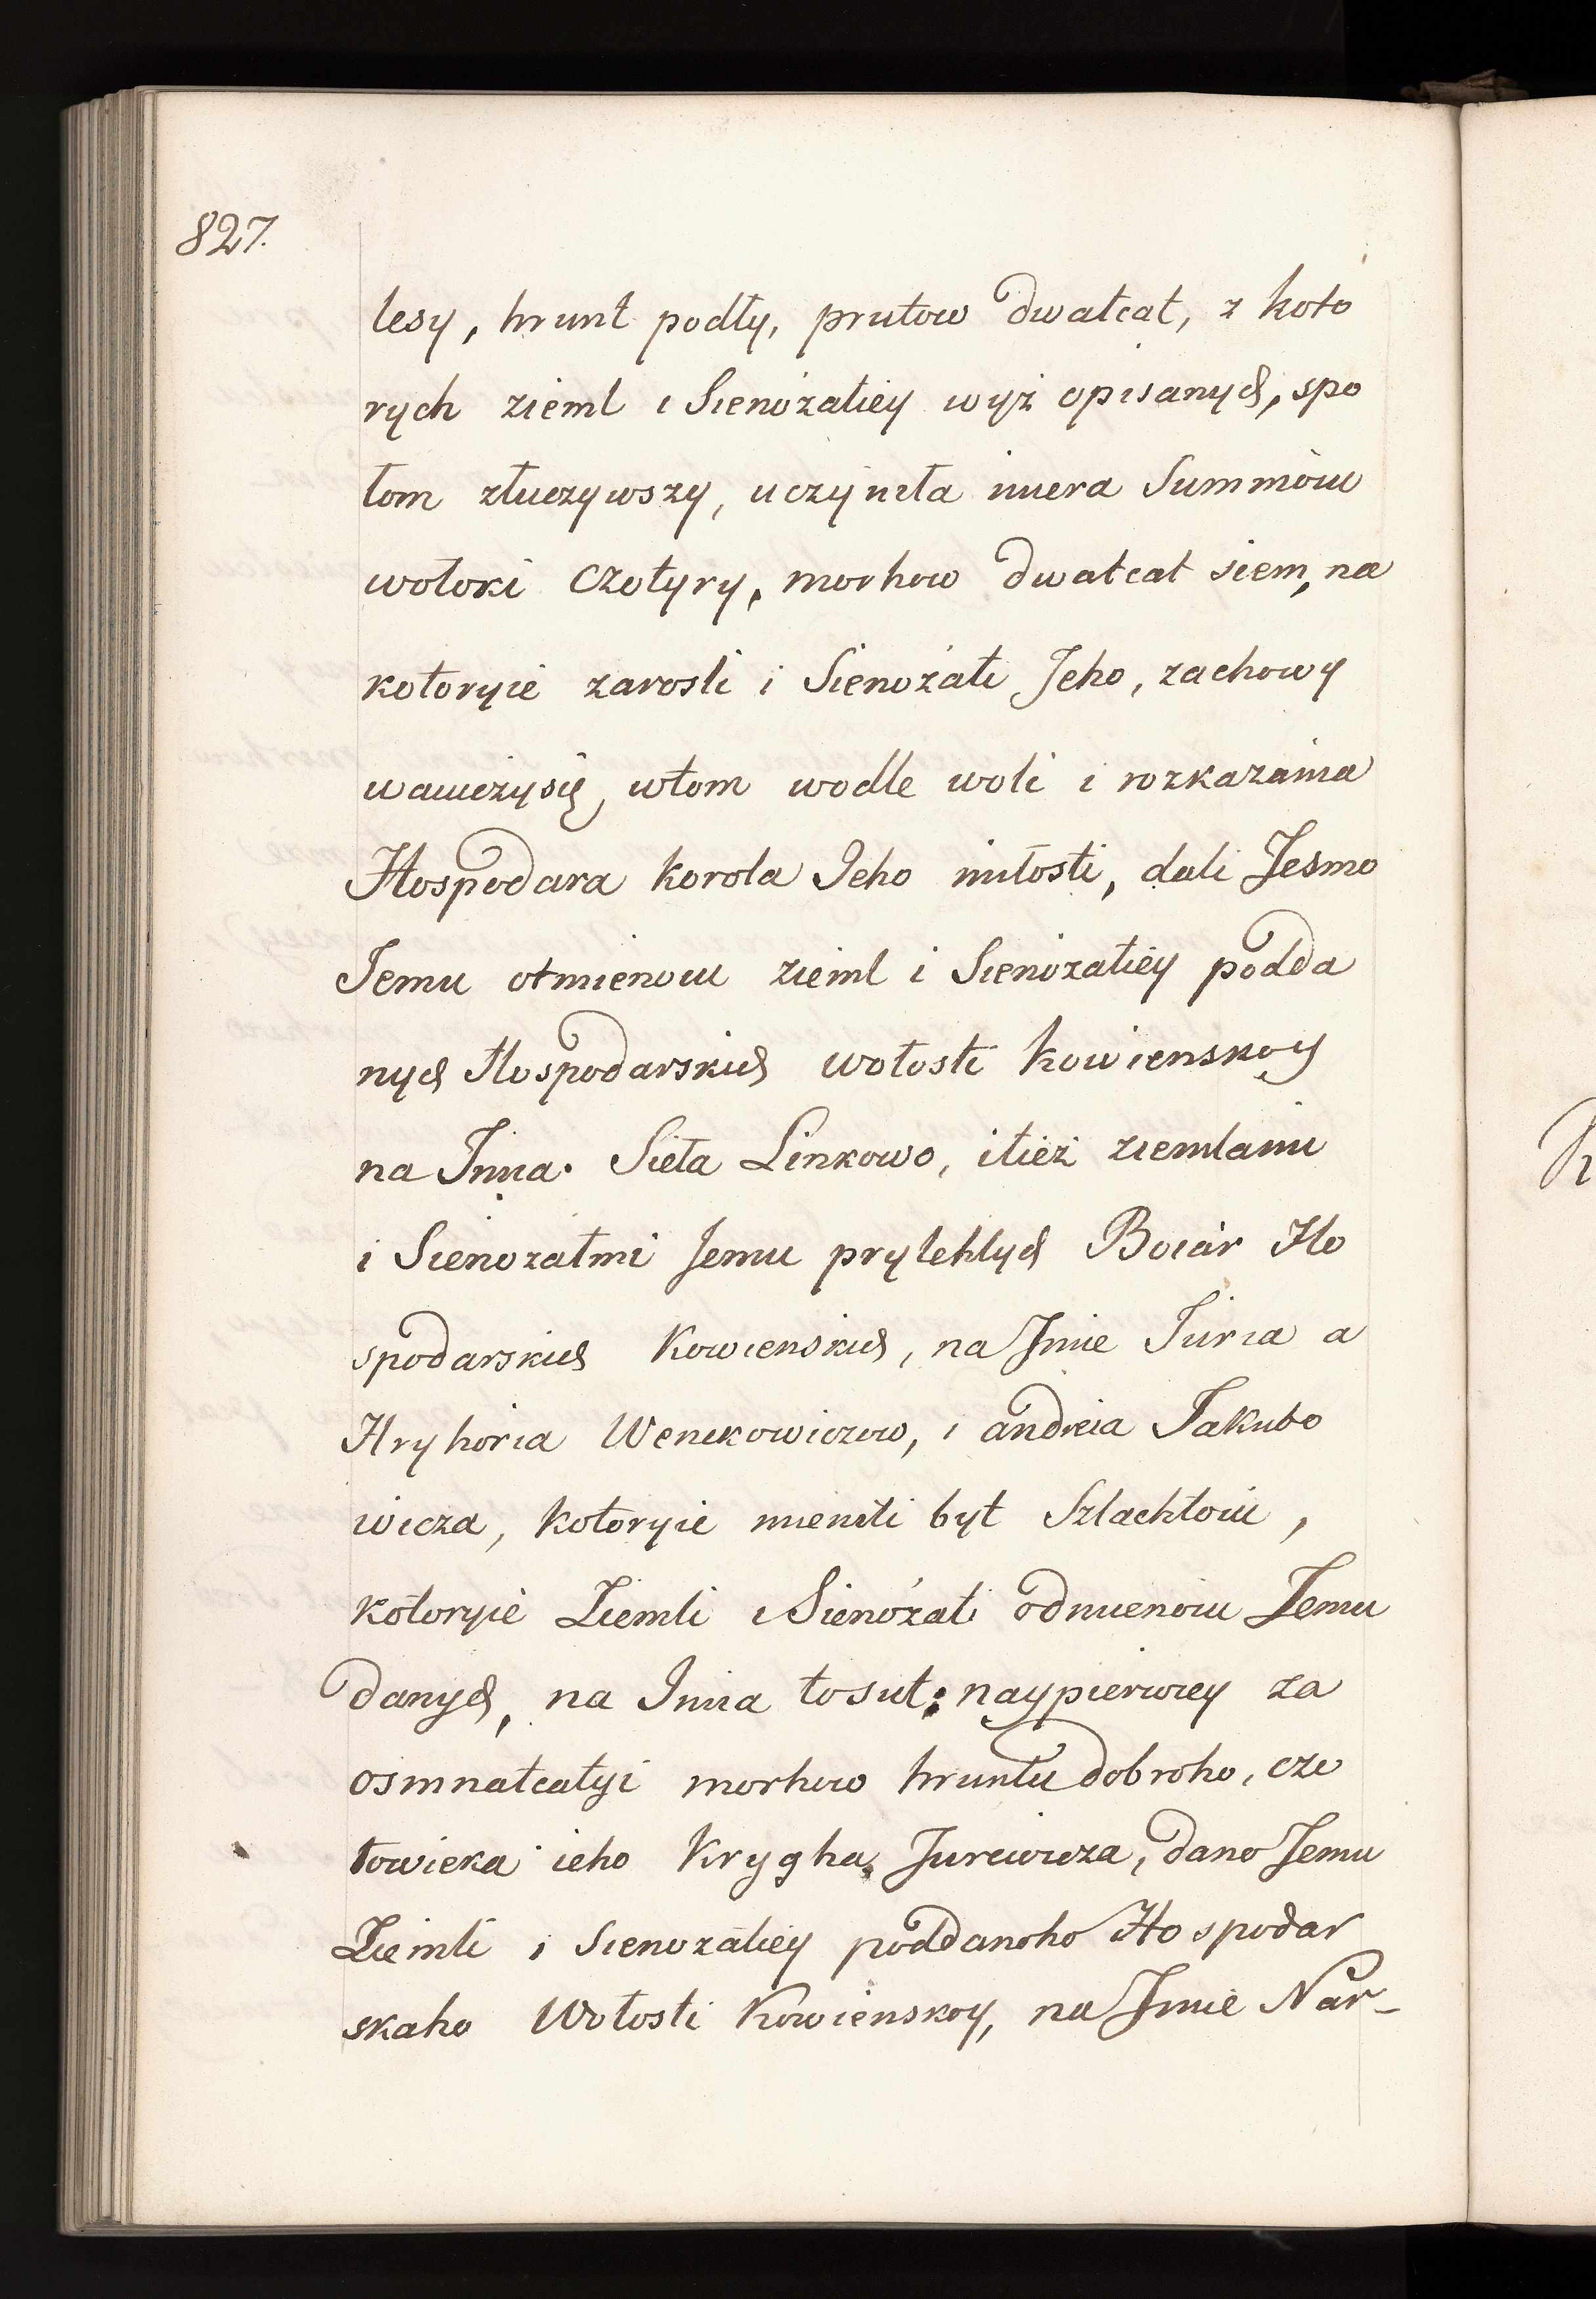 827.
lesy, hrunt podły, prutow dwatcat, z koto
rych zieml i Sienożatiey wyż opisanych, spo
łom złuczywszy, uczyniła miera Summoiu
wołoki czotyry, morhow dwatcat siem, na
kotoryie zarosli i Sienożati Jeho, zachowy
waiuczysię, wtom wodle woli i rozkazania
Hospodara korola Jeho miłosti, dali Jesmo
Jemu otmienoiu zieml i Sienożatiey podda
nych Hospodarskich wołosti kowienskoy
na Imia. Sieła Linkowo, itież ziemlami
i Sienozatmi Jemu prylehlych Boiar Ho
spodarskich Kowienskich, na Imie Juria a
Hryhoria Wenckowiczow, i andreia Jakubo
wicza, kotoryie mienili był Szlachtoiu,
kotoryie Ziemli i Sienożati odmienoiu Jemu
danych, na Imia tosut: naypierwiey za
osmnatcatyi morhow hruntu dobroho, cze
łowieka ieho Krygha Jurewicza, dano Jemu
Ziemli i Sienozatiey poddanoho Hospodar
skaho Wołosti Kowienskoy, na Imie Nar-